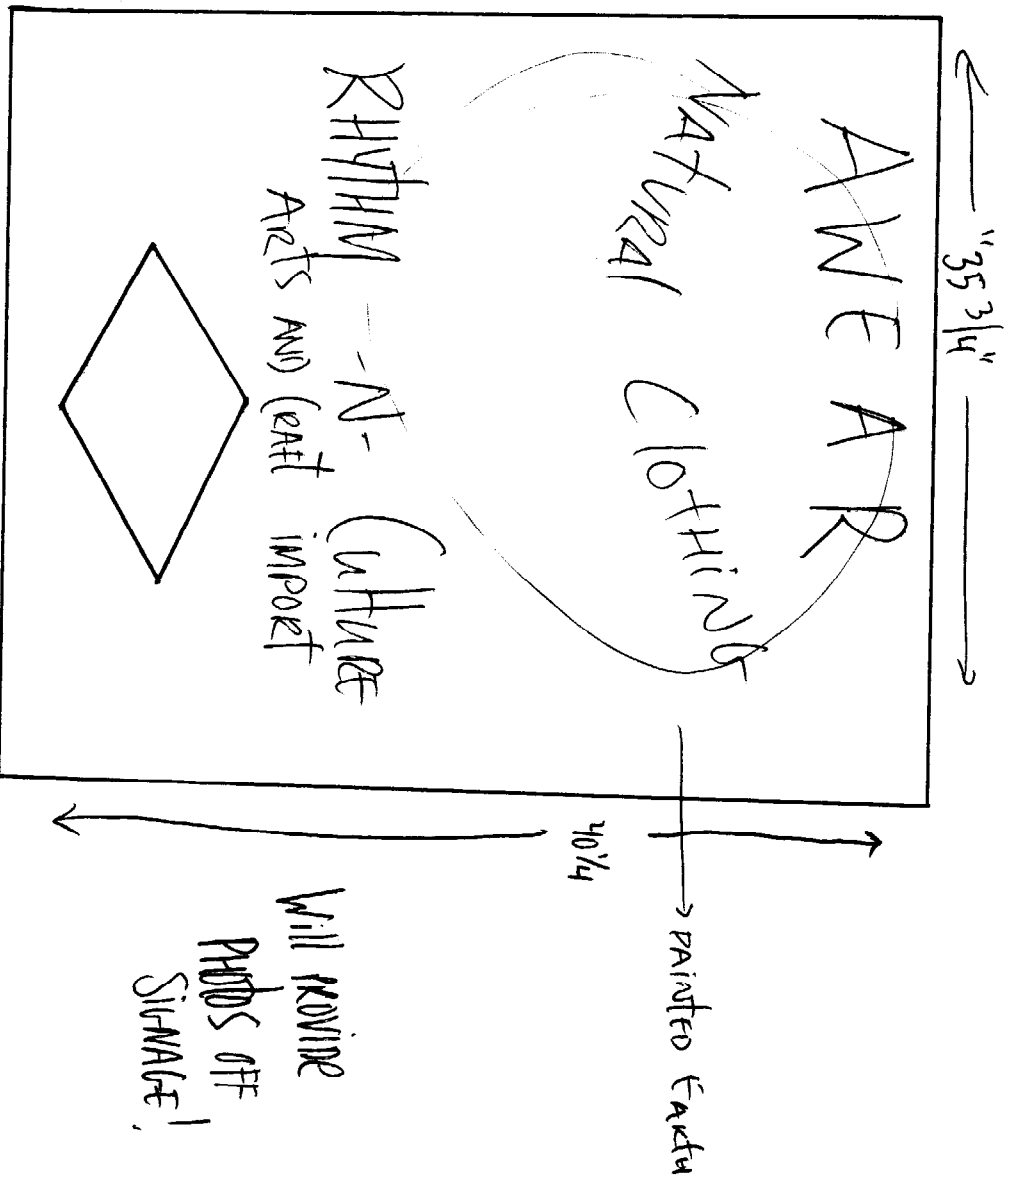 "35 3/4"
AWEAR
NATURAl ClOTHiNG
RHYTHM -N- CUltURE
ARTS AND CRAFT iMPORT
40 1/4
PAiNTED EARTH
Will PROViDE
PHOTOS OFF
SiGNAGE!